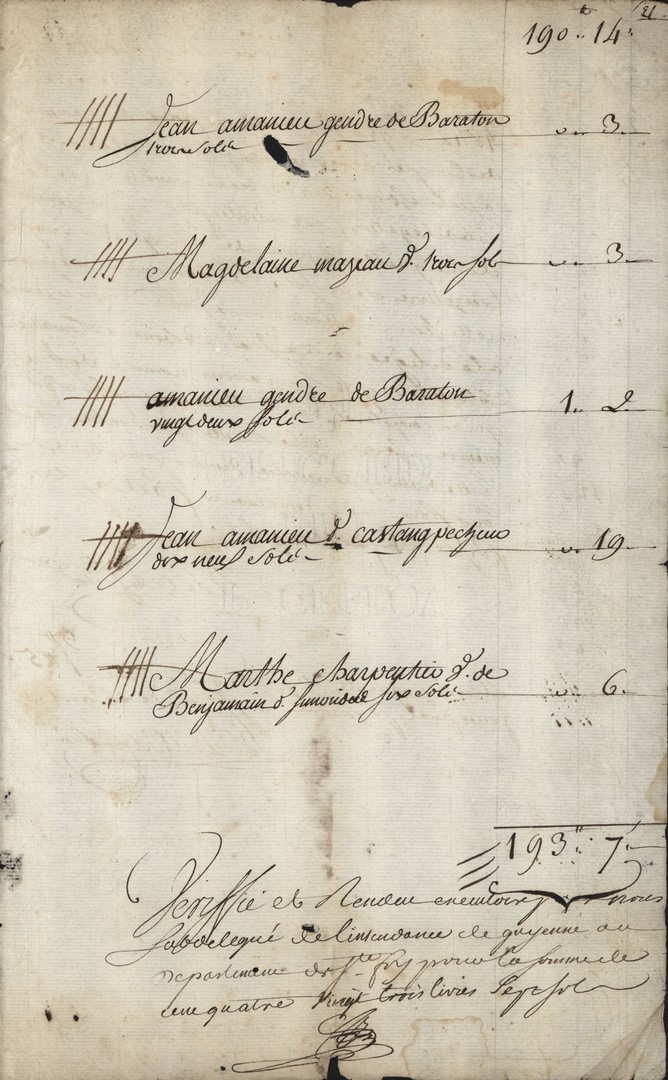 21
190 .. 14 ..
Jean amanieu gendre de Baraton .. 3
trois solz
Magdelaine mazeau d. trois solz .. 3
amanieu gendre de Baraton 1 .. 2
vingt deux solz
Jean amanieu d. castang pecheur .. 19
dix neuf solz
Marthe charpentier d. de .. 6
Benjamain d. six solz
193 .. 7
Veriffié et Rendeu executoire par nous
subdelegué de l'intendance de guyenne au
departement de Ste foy pour la somme de
cent quatre vingt trois livres sept solz